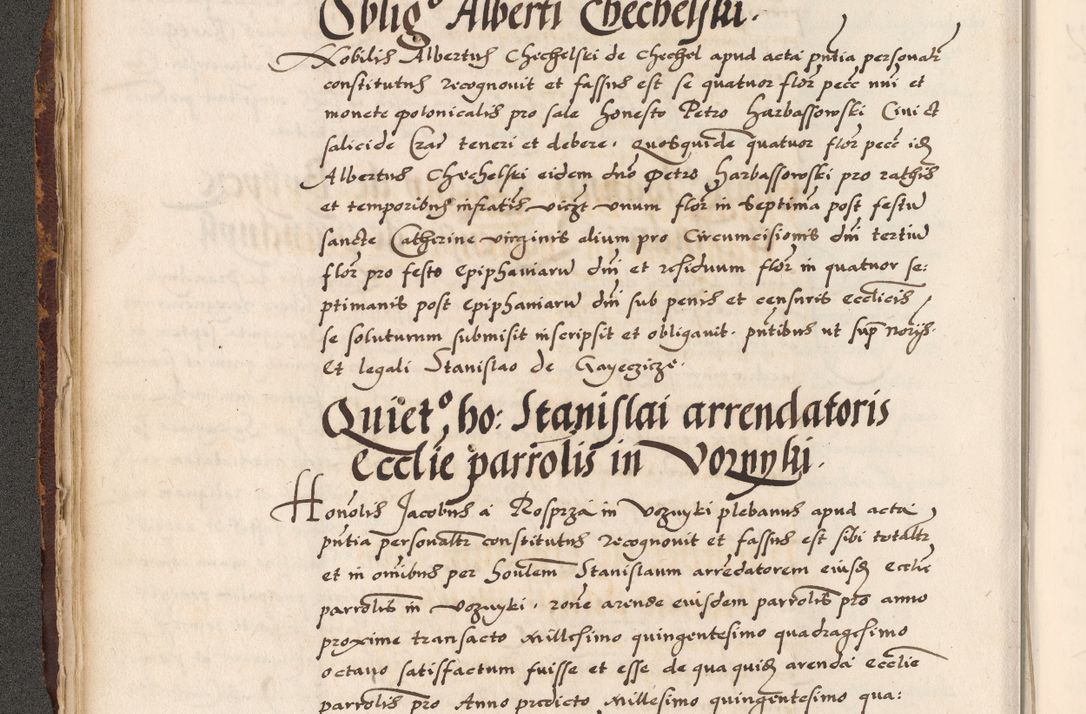 Oblig° Alberti Chechelski.
Nobilis Albertus Chechelski de Chechel apud acta pntia personalr
constitutus recognovit et fassus est se quatuor flor pecc nui et
monete polonicalis pro sale honesto Petro Harbassowski Civi et
salicide Crac teneri et debere. Quosquide quatuor flor pecc ide
Albertus Chechelski eidem dno Petro Harbassowski pro rathis
et temporibus infratis vicz unum flor in Septima post festu
sancte Catherine virginis alium pro Circumcisionis dni tertiu
flor pro festo Epiphaniaru dni et residuum flor in quatuor se:
ptimanis post Epiphaniaru dni sub penis et censuris ecclicis
se soluturum submisit inscripsit et obligavit. pntibus ut sup noriis.
Et legali Stanislao de Gayeczicze.
Quiet° ho: Stanislai arrendatoris
Ecclie parrolis in Voznyki.
Honolis Jacobus a Rosprza in Voznyki plebanus apud acta
pntia personaltr constitutus recognovit et fassus est sibi totaltr
et in omibus per houlem Stanislaum arredatorem eiusd Ecclie
parrolis in Voznyki. rone arende eiusdem parrolis pro anno
proxime transacto Millesimo quingentesimo quadragesimo
octavo satisfactum fuisse et esse de qua quid arenda ecclie
parrolis pro Anno predicto Millesimo quingentesimo qua: